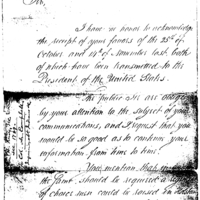 Sir,
I have the honor to acknowledge
the receipt of your favors of the 25th of
October and 14th of November last, both
of which have been transmitted to the
President of the United States.
The public are obliged
by your attention to the subject of your
communications, and I request that you
would be so good as to continue your
information from time to time.
You mention that
the should be required a
of chosen men could be raised in